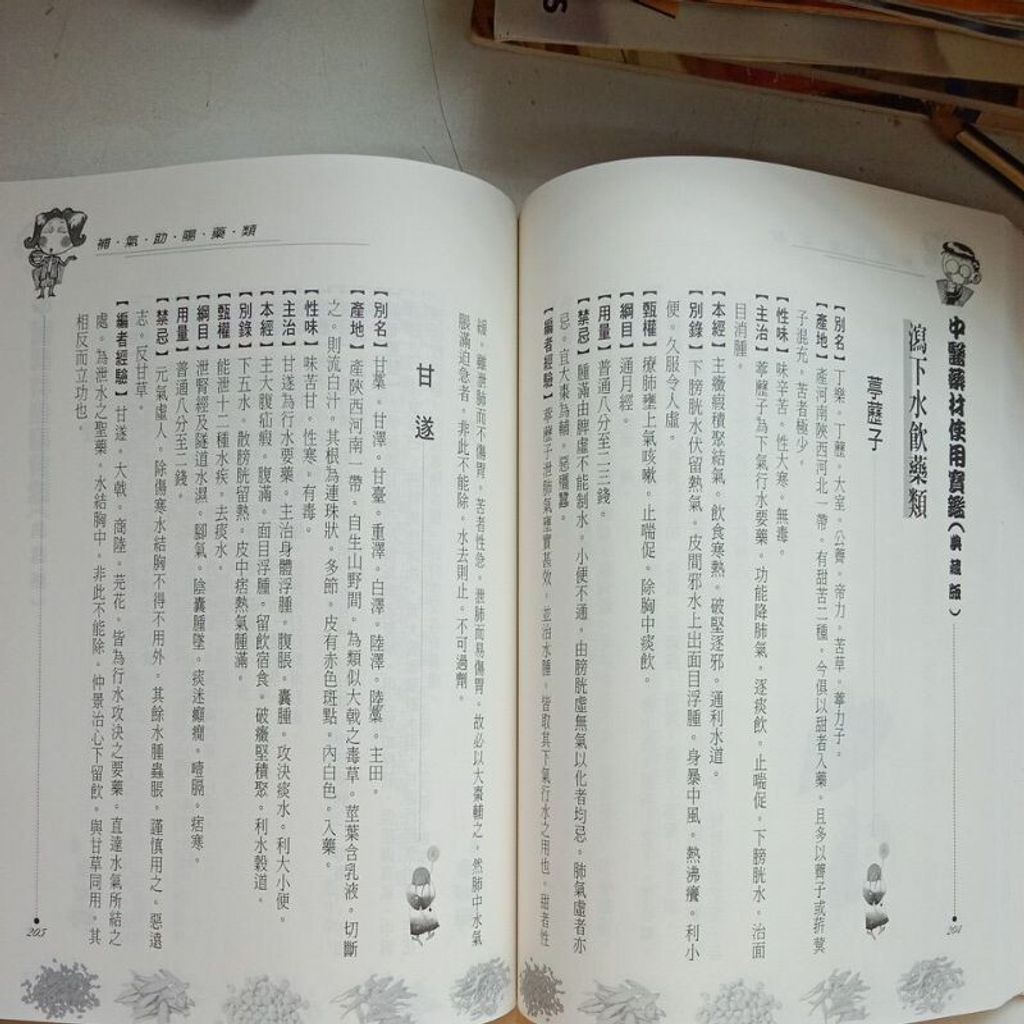 中醫藥材使用寶鑑(典藏版)
瀉下水飲藥類
葶藶子
【別名】丁樂。丁藶。大室。公薺。帝力。苦草。葶力子。
【產地】產河南陝西河北一帶。有甜苦二種。今俱以甜者入藥。且多以薺子或菥蓂
子混充。苦者極少。
【性味】味辛苦。性大寒。無毒。
【主治】葶藶子為下氣行水要藥。功能降肺氣。逐痰飲。止喘促。下膀胱水。治面
目消腫。
【本經】主癥瘕積聚結氣。飲食寒熱。破堅逐邪。通利水道。
【別錄】下膀胱水伏留熱氣。皮間邪水上出面目浮腫。身暴中風。熱沸癢。利小
便。久服令人虛。
【甄權】療肺壅上氣咳嗽。止喘促。除胸中痰飲。
【綱目】通月經。
【用量】普通八分至二三錢。
【禁忌】腫滿由脾虛不能制水。小便不通。由膀胱虛無氣以化者均忌。肺氣虛者亦
忌。宜大棗為輔。惡殭蠶。
【編者經驗】葶藶子泄肺氣壅實甚效。並治水腫。皆取其下氣行水之用也。甜者性
緩。雖泄肺而不傷胃。苦者性急。泄肺而易傷胃。故必以大棗輔之。然肺中水氣
脹滿迫急者。非此不能除。水去則止。不可過劑。
204
補‧氣‧助‧陽‧藥‧類
甘遂
【別名】甘藁。甘澤。甘臺。重澤。白澤。陸澤。陸藁。主田。
【產地】產陝西河南一帶。自生山野間。為類似大戟之毒草。莖葉含乳液。切斷
之。則流白汁。其根為連珠狀。多節。皮有赤色斑點。內白色。入藥。
【性味】味苦甘。性寒。有毒。
【主治】甘遂為行水要藥。主治身體浮腫。腹脹。囊腫。攻決痰水。利大小便。
【本經】主大腹疝瘕。腹滿。面目浮腫。留飲宿食。破癥堅積聚。利水穀道。
【別錄】下五水。散膀胱留熱。皮中痞熱氣腫滿。
【甄權】能泄十二種水疾。去痰水。
【綱目】泄腎經及隧道水濕。腳氣。陰囊腫墜。痰迷癲癇。噎膈。痞寒。
【用量】普通八分至二錢。
【禁忌】元氣虛人。除傷寒水結胸不得不用外。其餘水腫蟲脹。謹慎用之。惡遠
志。反甘草。
【編者經驗】甘遂。大戟。商陸。芫花。皆為行水攻決之要藥。直達水氣所結之
處。為泄水之聖藥。水結胸中。非此不能除。仲景治心下留飲。與甘草同用。其
相反而立功也。
205